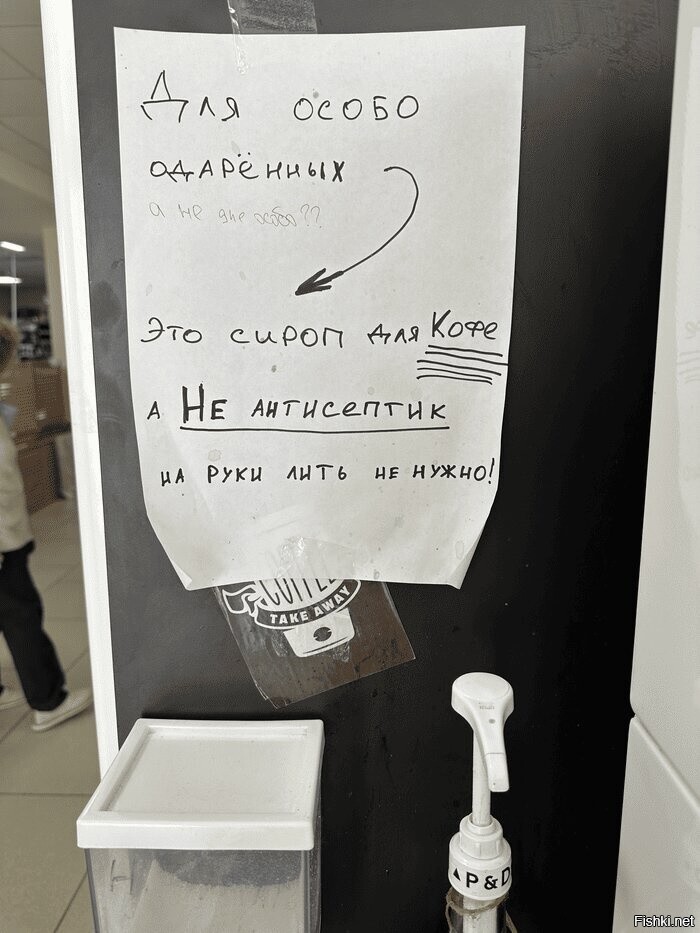 Для особо
одарённых
а не для особо??
Это сироп для Кофе
а Не антисептик
на руки лить не нужно!
COFFEE
TAKE AWAY
▲P & D
Fishki.net